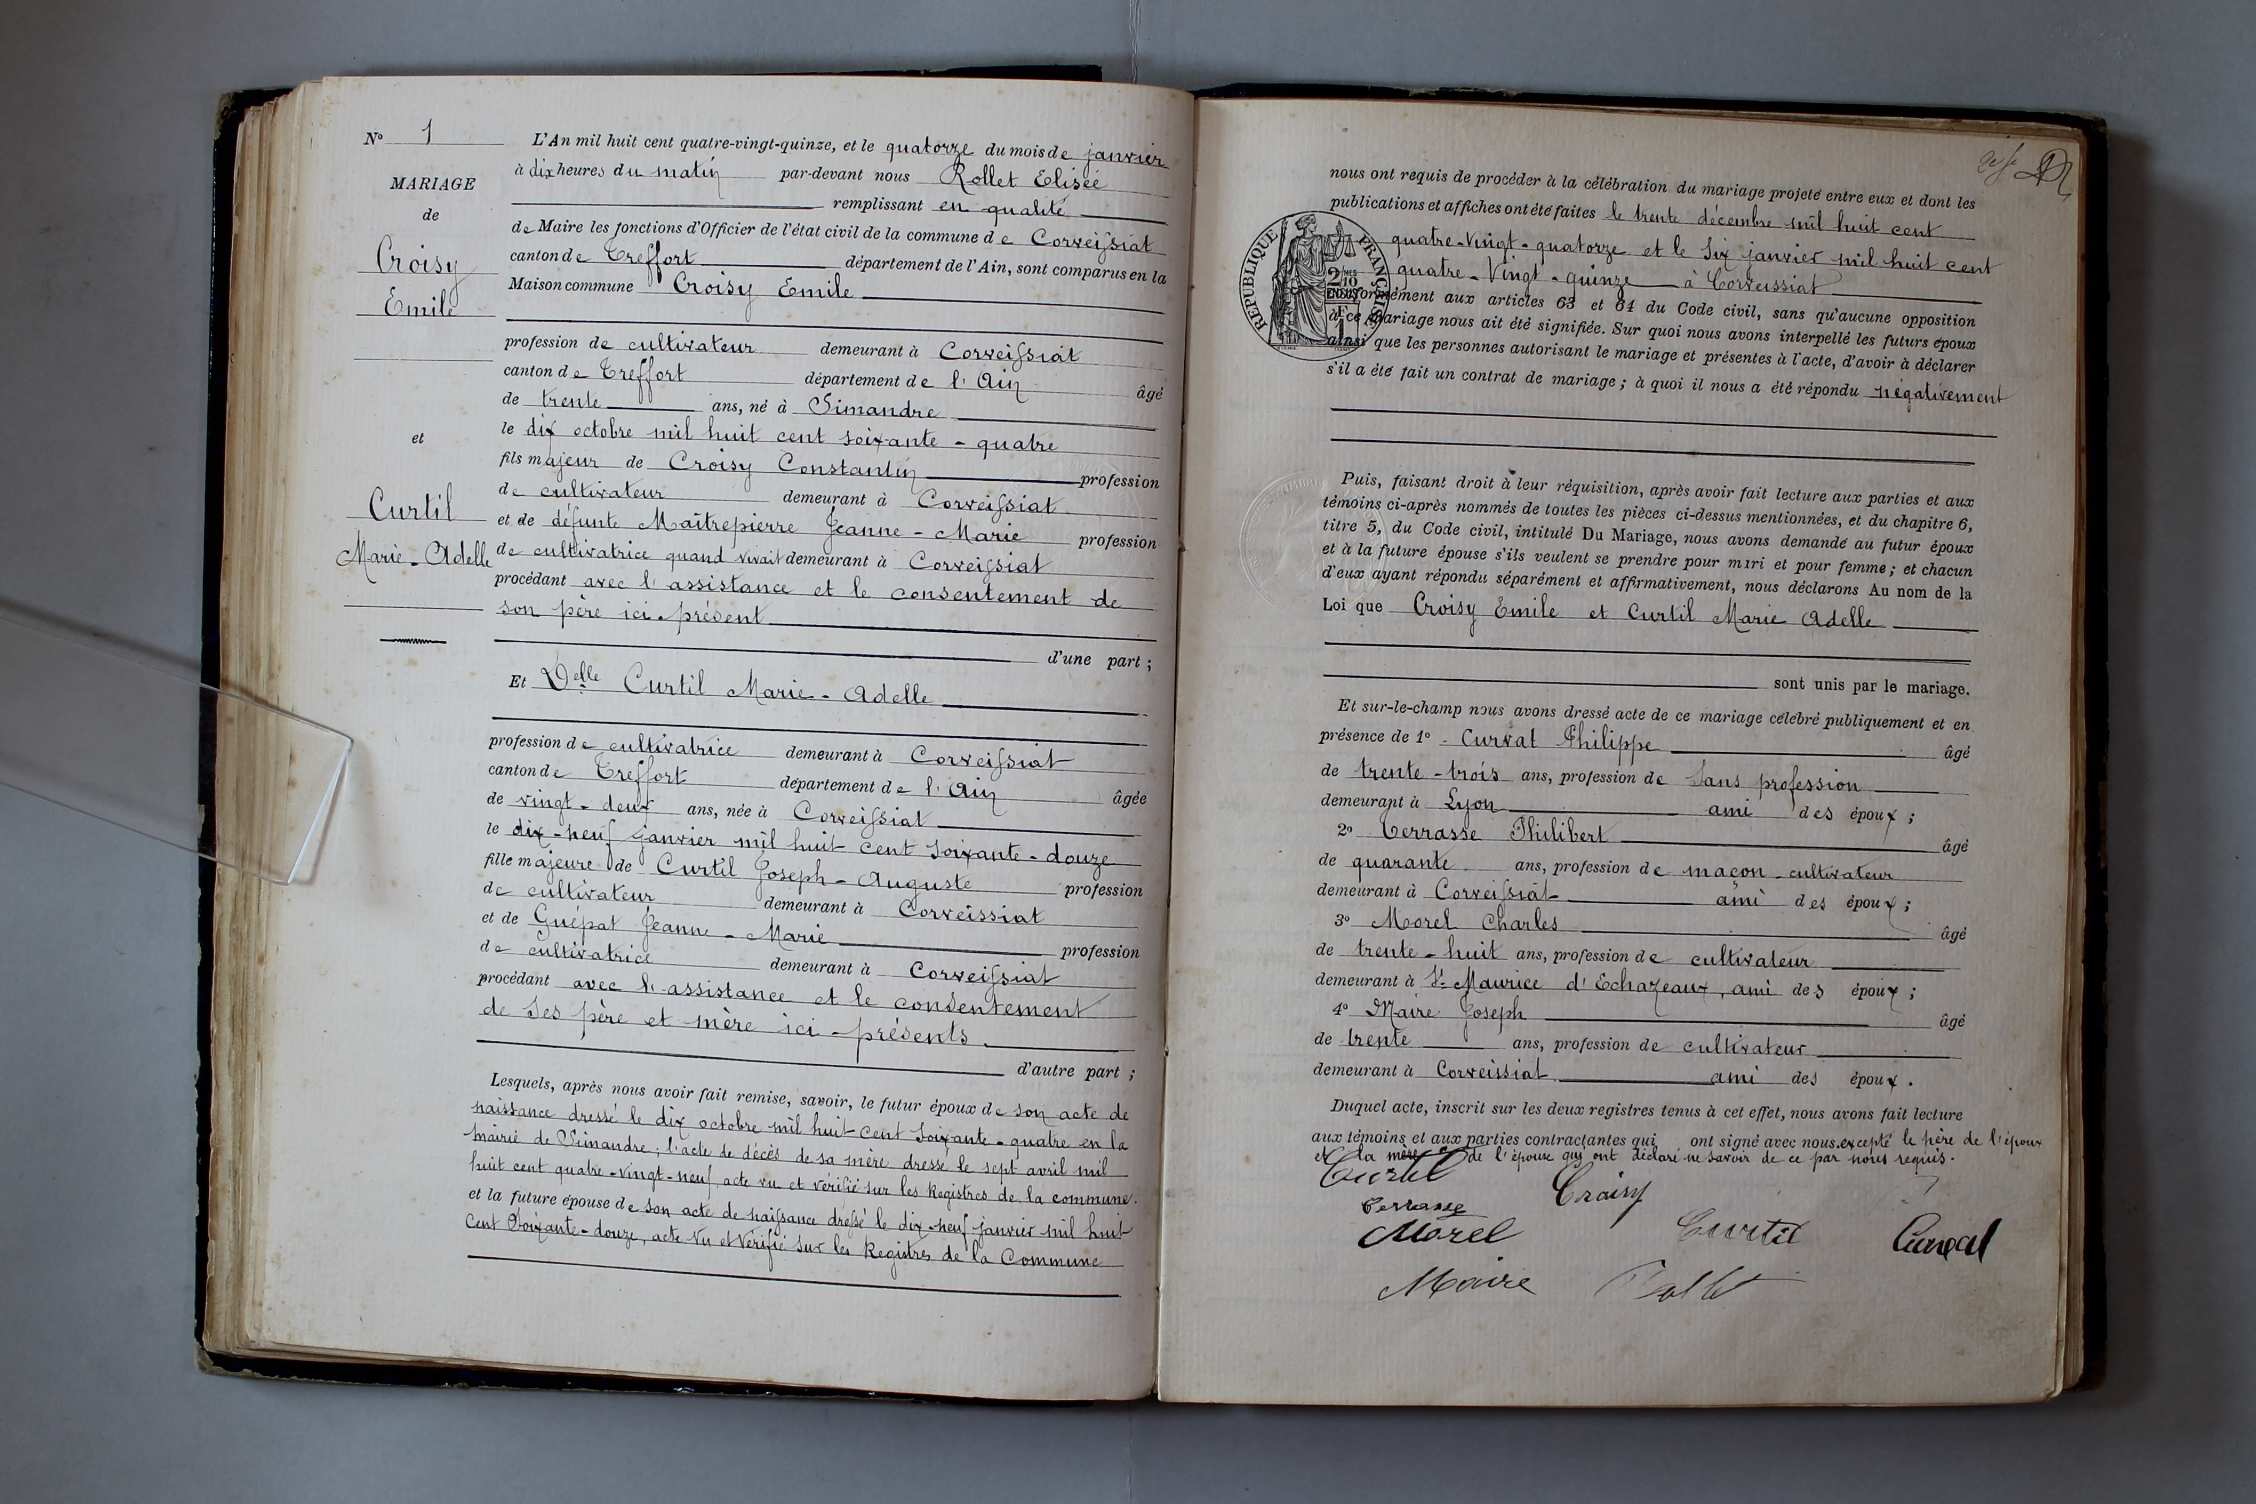 Nº 1
MARIAGE
de
Croisy
Emile
et
Curtil
Marie-Adelle
L'An mil huit cent quatre-vingt-quinze, et le quatorze du mois de janvier
à dix heures du matin par-devant nous Rollet Elisée
remplissant en qualité
de Maire les fonctions d'Officier de l'état civil de la commune de Corveissiat
canton de Treffort département de l'Ain, sont comparus en la
Maison commune Croisy Emile
profession de cultivateur demeurant à Corveissiat
canton de Treffort département de l'Ain âgé
de trente ans, né à Simandre
le dix octobre mil huit cent soixante-quatre
fils majeur de Croisy Constantin profession
de cultivateur demeurant à Corveissiat
et de défunte Maîtrepierre Jeanne-Marie profession
de cultivatrice quand vivait demeurant à Corveissiat
procédant avec l'assistance et le consentement de
son père ici présent
d'une part;
Et Delle Curtil Marie-Adelle
profession de cultivatrice demeurant à Corveissiat
canton de Treffort département de l'Ain âgée
de vingt-deux ans, née à Corveissiat
le dix-neuf janvier mil huit cent soixante-douze
fille majeure de Curtil Joseph-Auguste profession
de cultivateur demeurant à Corveissiat
et de Guépat Jeanne-Marie profession
de cultivatrice demeurant à Corveissiat
procédant avec l'assistance et le consentement
de ses père et mère ici-présents
d'autre part;
Lesquels, après nous avoir fait remise, savoir, le futur époux de son acte de
naissance dressé le dix octobre mil huit cent soixante-quatre en la
mairie de Simandre; l'acte de décès de sa mère dressé le sept avril mil
huit cent quatre-vingt-neuf, acte vu et vérifié sur les Registres de la commune.
et la future épouse de son acte de naissance dressé le dix-neuf janvier mil huit
cent soixante-douze, acte vu et vérifié sur les Registres de la Commune
nous ont requis de procéder à la célébration du mariage projeté entre eux et dont les
publications et affiches ont été faites le trente décembre mil huit cent
quatre-vingt-quatorze et le six janvier mil huit cent
quatre-vingt-quinze à Corveissiat
conformément aux articles 63 et 64 du Code civil, sans qu'aucune opposition
à ce mariage nous ait été signifiée. Sur quoi nous avons interpellé les futurs époux
ainsi que les personnes autorisant le mariage et présentes à l'acte, d'avoir à déclarer
s'il a été fait un contrat de mariage; à quoi il nous a été répondu négativement
RÉPUBLIQUE FRANÇAISE
Puis, faisant droit à leur réquisition, après avoir fait lecture aux parties et aux
témoins ci-après nommés de toutes les pièces ci-dessus mentionnées, et du chapitre 6,
titre 5, du Code civil, intitulé Du Mariage, nous avons demandé au futur époux
et à la future épouse s'ils veulent se prendre pour mari et pour femme; et chacun
d'eux ayant répondu séparément et affirmativement, nous déclarons Au nom de la
Loi que Croisy Emile et Curtil Marie Adelle
sont unis par le mariage.
Et sur-le-champ nous avons dressé acte de ce mariage célébré publiquement et en
présence de 1º Curval Philippe âgé
de trente-trois ans, profession de sans profession
demeurant à Lyon ami des époux;
2º Terrasse Philibert âgé
de quarante ans, profession de maçon-cultivateur
demeurant à Corveissiat ami des époux;
3º Morel Charles âgé
de trente-huit ans, profession de cultivateur
demeurant à St Maurice d'Echazeaux, ami des époux;
4º Maire Joseph âgé
de trente ans, profession de cultivateur
demeurant à Corveissiat ami des époux.
Duquel acte, inscrit sur les deux registres tenus à cet effet, nous avons fait lecture
aux témoins et aux parties contractantes qui ont signé avec nous, excepté le père de l'époux
et la mère de l'épouse qui ont déclaré ne savoir de ce par nous requis.
Curtil
Croisy
Terrasse
Morel
Curtil
Curval
Maire
Rollet